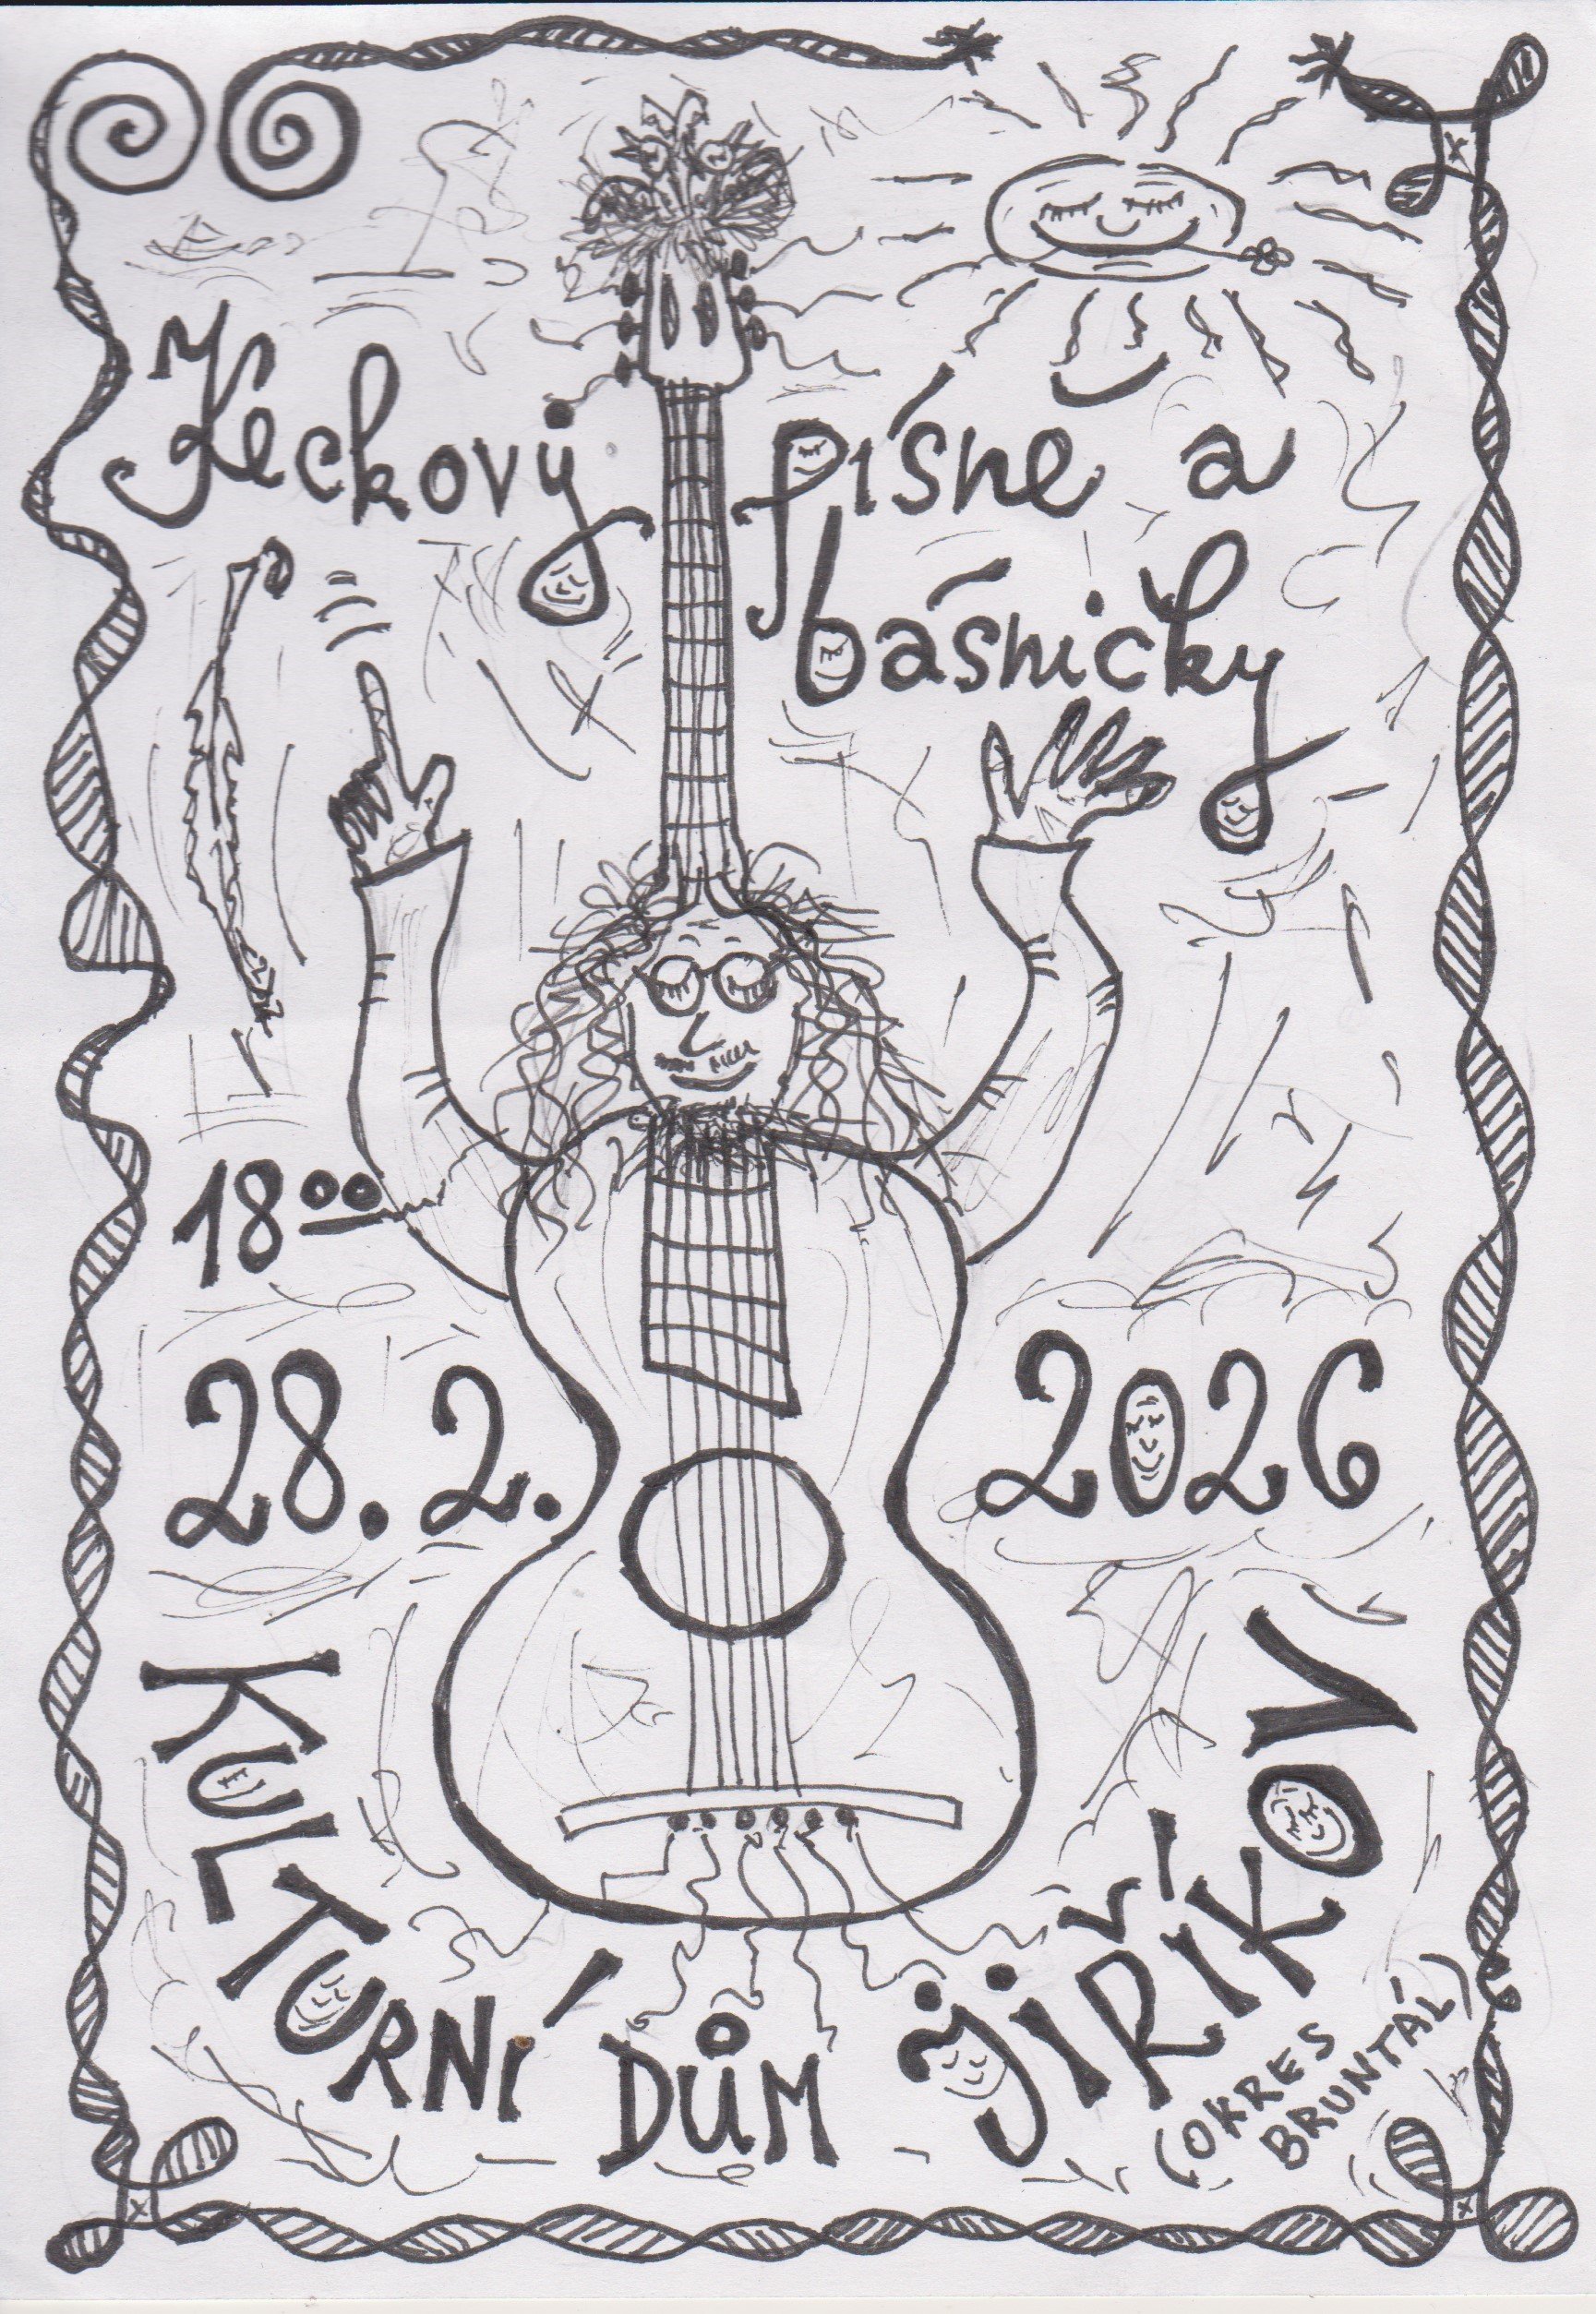 Keckový písně a
básničky
18⁰⁰
28. 2. 2026
KULTURNÍ DŮM JIŘÍKOV
(OKRES
BRUNTÁL)